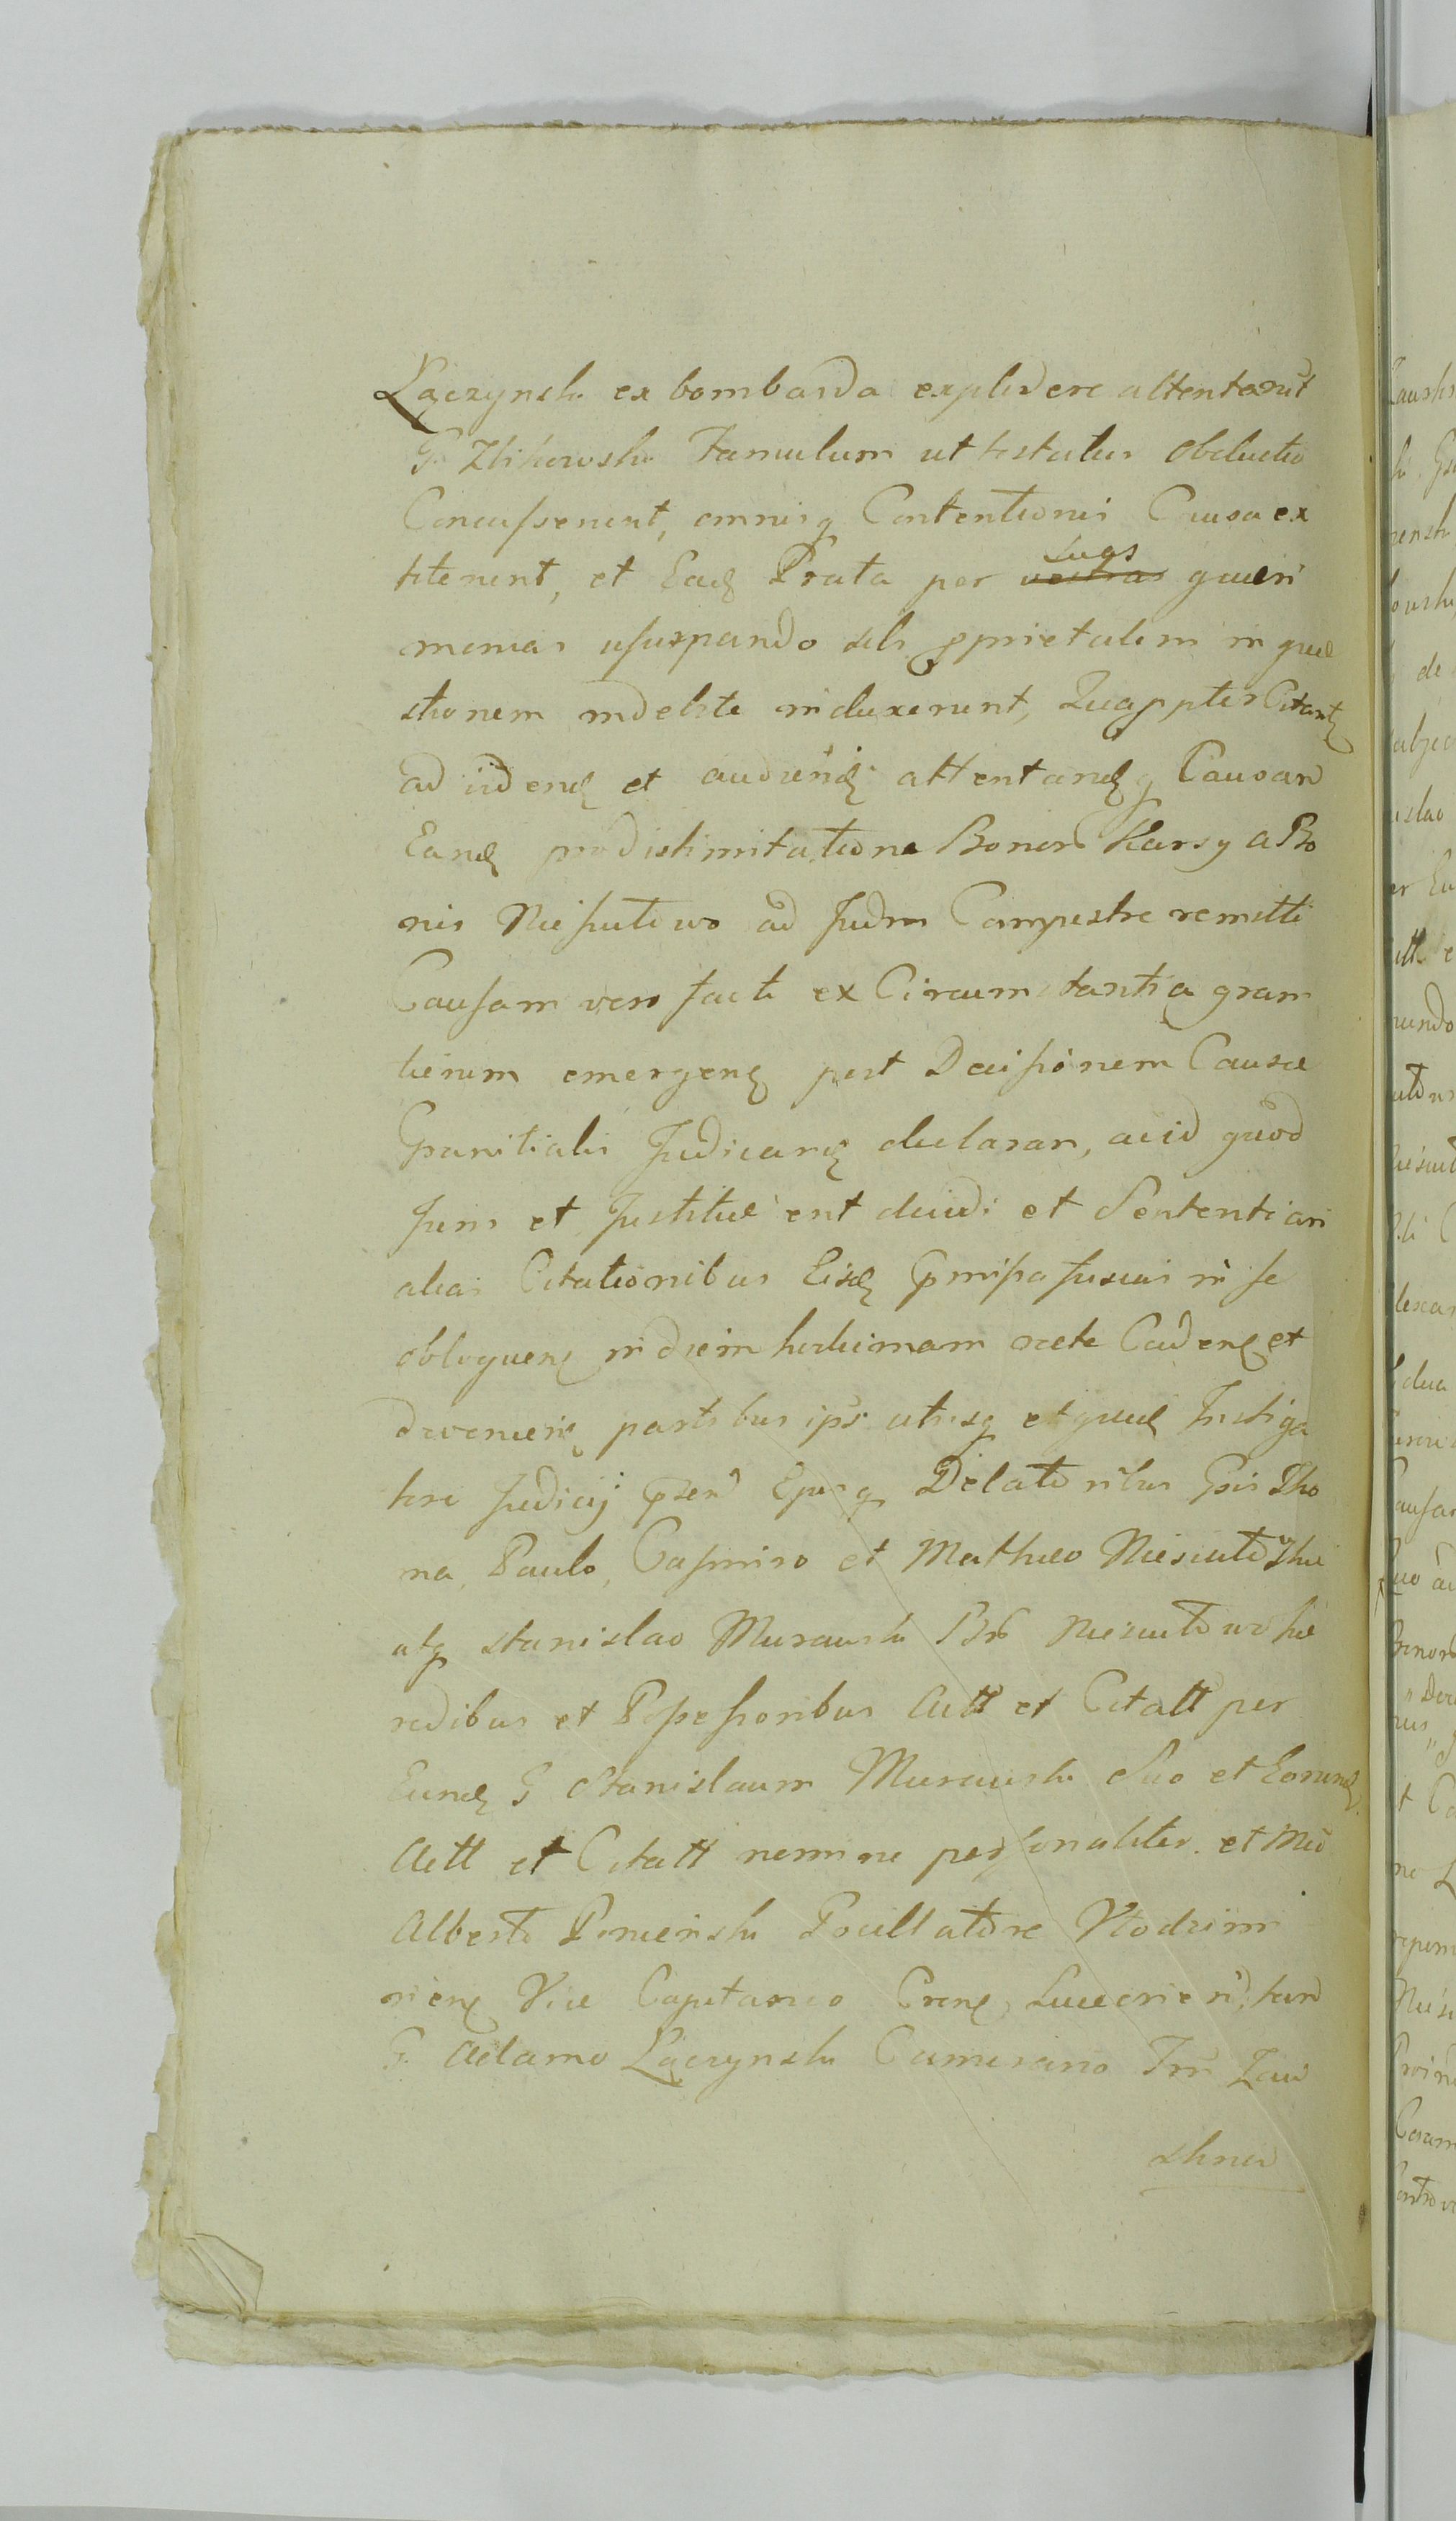 Łączynski ex bombarda explodere attentarut
G. Zbikowski Famulum ut testatur Obductio
Concusserunt, omnisq Contentionis Causa ex
titerunt, et Eadq Prata per vestras suas queri
monias usurpando sibi pprietatem in quæ
stionem indebite induxerunt, Quappter Citant
ad videnq et audienq attentanq q Causam
Eanq pro distimitatione Bonor Karsy a Bo
nis Niesiutowo ad Judm Campestre remitti
Causam vero facti ex Circumstantia gran
tierum emergenq post Decisionem Causæ
Granitialis Judicanq declarari, acid quod
Juris et Justitiæ ent decidi et Sententiari
alias Citationibus Eisq pmissa fusius in se
obloquenq in diem hodiernam recte Cadenq et
devenienq partibus ipsi utrisq et quidq Instiga
tore Judicij psen Ejusq Delatoribus Gsis Tho
ma, Paulo, Casimiro et Mathæo Niesiutowskie
atq Stanislao Murawski Bnr Niesiutowo hæ
redibus et Possessoribus Actt et Citatt per
Eunq G Stanislaum Murawski Suo et Eorunq
Actt et Citatt nomine personaliter. et Mco
Alberto Pomienski Pocillatore Włodzim
rienq Vice Capitaneo Crenq Luceorien, tum
G. Adamo Łączynski Camerario Trr Zaw
skrien